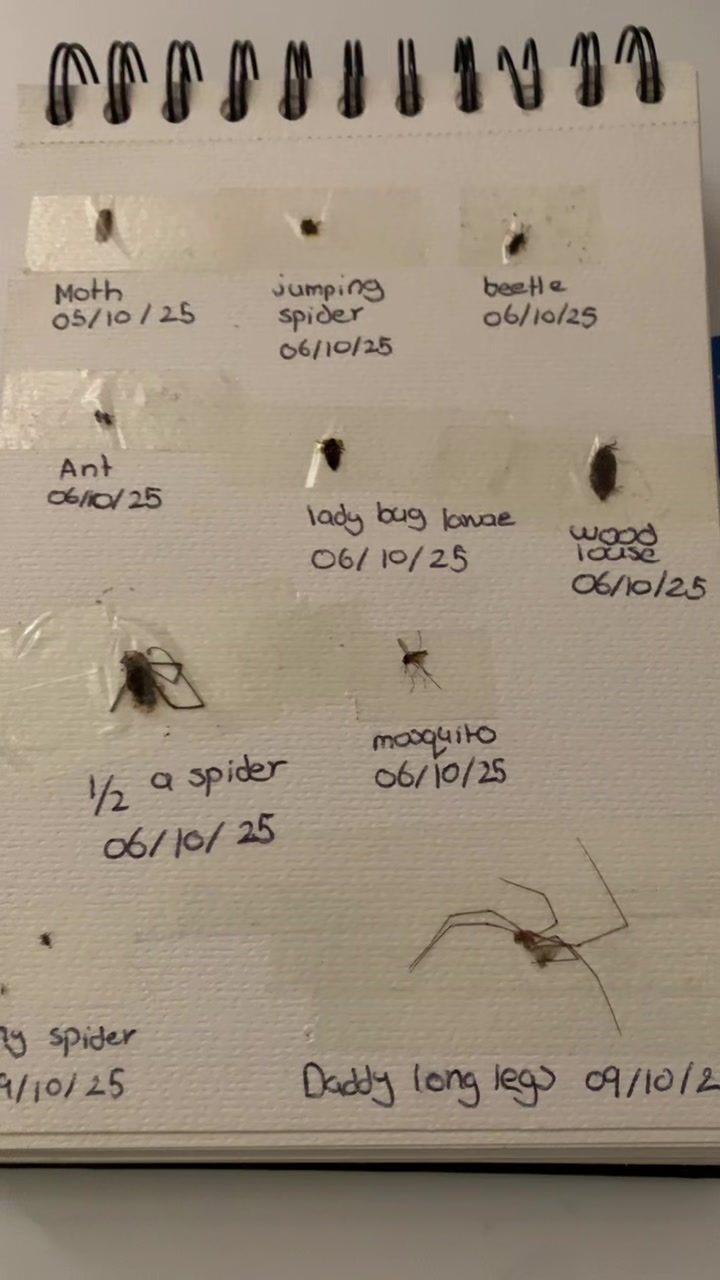 Moth
05/10/25
jumping
spider
06/10/25
beetle
06/10/25
Ant
06/10/25
lady bug larvae
06/10/25
wood
louse
06/10/25
1/2 a spider
06/10/25
mosquito
06/10/25
spider
/10/25
Daddy long legs 09/10/2